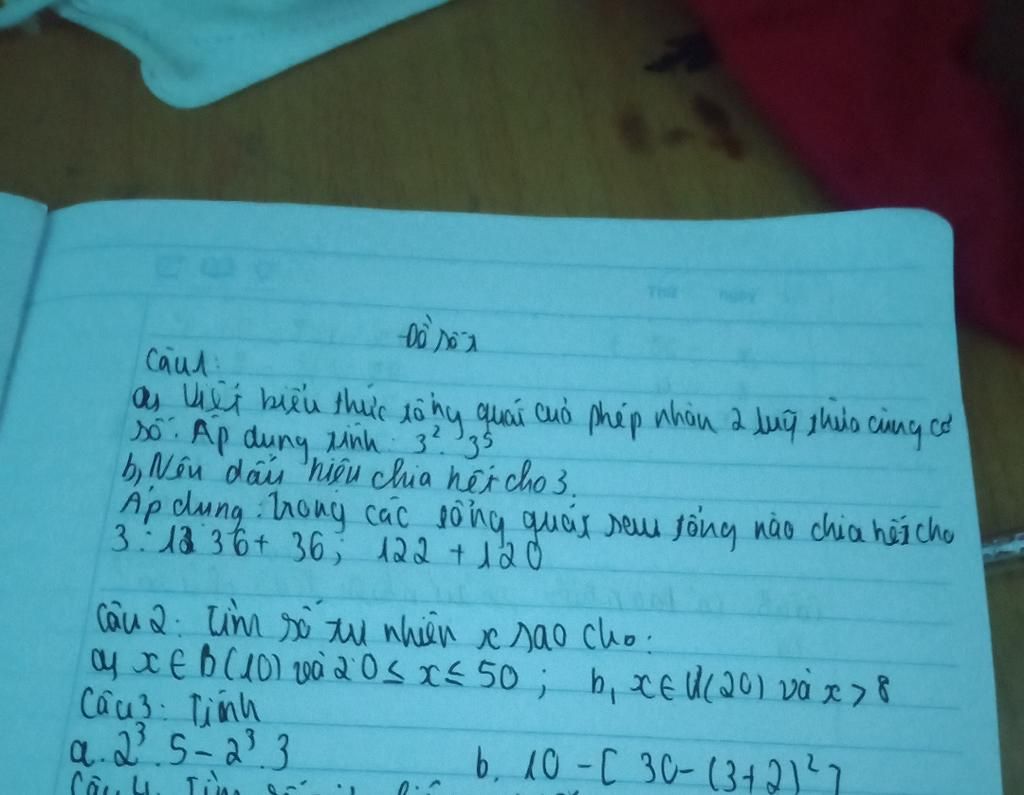 Đề số 1
Câu 1:
a, Viết biểu thức tổng quái cuả phép nhân 2 luỹ thừa cùng cơ
số. Áp dụng tính: 3². 3⁵
b, Nêu dấu hiệu chia hết cho 3.
Áp dụng: trong các tổng quát sau tổng nào chia hết cho
3: 12 36 + 36; 122 + 120
Câu 2: Tìm số tự nhiên x sao cho:
a, x ∈ B(10) và 20 ≤ x ≤ 50; b, x ∈ Ư(20) và x > 8
Câu 3: Tính
a. 2³. 5 - 2³. 3 b. 10 - [ 30 - (3+2)²]
Câu 4. Tìm số